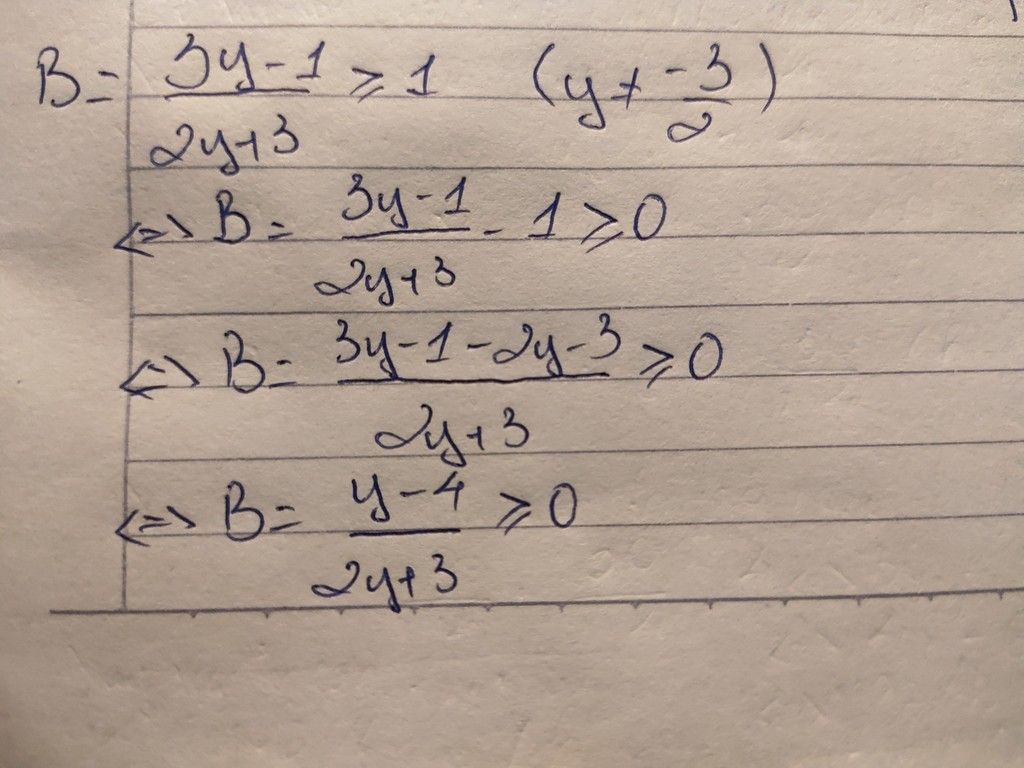 B = \frac{3y-1}{2y+3} ≥ 1 (y ≠ \frac{-3}{2})
<=> B = \frac{3y-1}{2y+3} - 1 ≥ 0
<=> B = \frac{3y-1-2y-3}{2y+3} ≥ 0
<=> B = \frac{y-4}{2y+3} ≥ 0